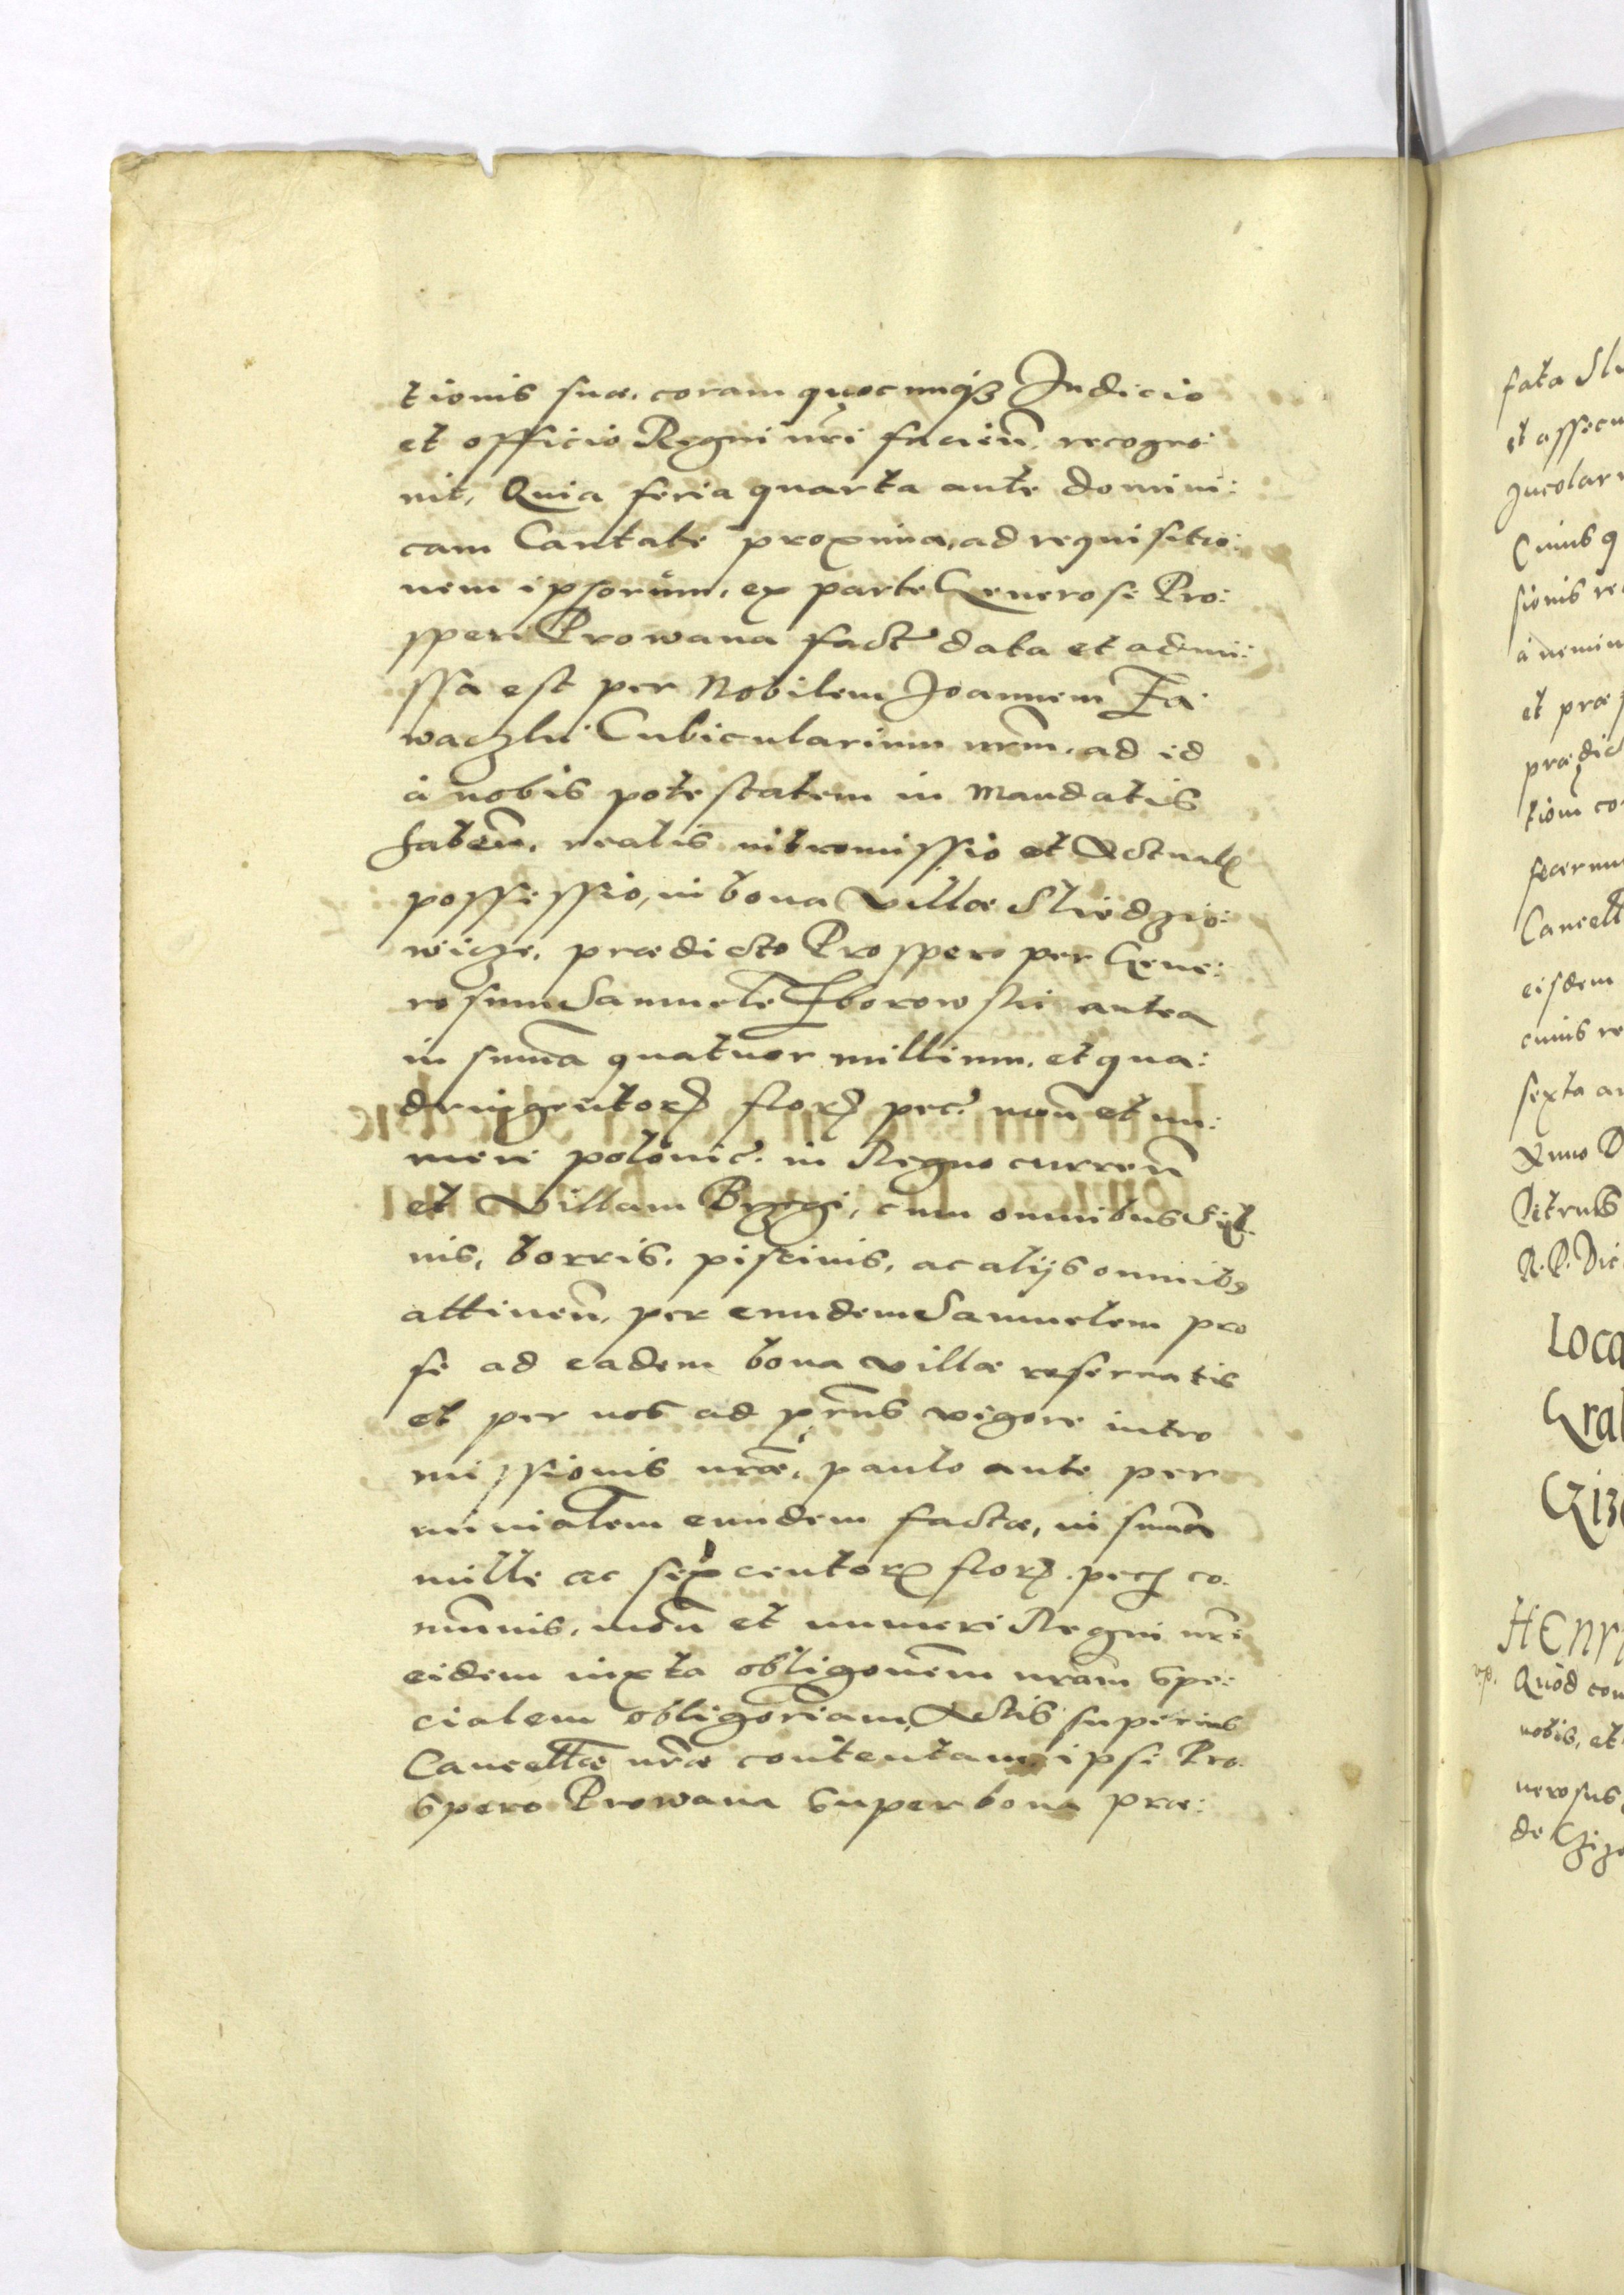 tionis suæ, coram quocunq₃ Judicio
et officio Regni nr̃i facieñ, recogno:
uit, Quia feria quarta ante domini:
cam Cantate proxima, ad requisitio:
nem ipsorum, ex parte Generosi Pro:
speri Prowana fact. data et admi:
ssa est per Nobilem Joannem Za:
waczki Cubicularium nr̃m, ad id
à nobis potestatem in Mandatis
habeñ, realis intromissio et Actual.
possessio, in bona Villæ Sliedzio:
wicze, prædicto Prospero per Gene:
rosum Samuelẽ Zborowski antea
in sum̃a quatuor millium, et qua:
dringentor. flor. pec. moñ et nu:
meri polonic. in Regno curreñ
et Villam Byegi, cum omnibus Syl:
uis, borris, piscinis, ac alijs omnib9
attineñ, per eundem Samuelem pro
se ad eadem bona Villæ reseruatis
et per nos ad pr̃ns vigore intro
missionis nr̃æ, paulo ante per
eundem factæ, in sum̃a
mille ac sexcentor. flor. pec. co:
m̃unis, moñ et numeri Regni nr̃i
eidem iuxta obligoñem nr̃am spe:
cialem obligoriam, Actis superius
Cancellæ nr̃æ contentam ipsi Pro:
spero Prowana super bona præ:
fata
et assecu
Incolar
Cuius q
sionis re
à nemin
et præ
prædict
tiom co
fecerun
Cancell
eisdem
cuius re
sexta a
Anno D
Petrus
R. P. Vic
Loca
Gra
HENR
Quod com
nobis, et
nerosus
de